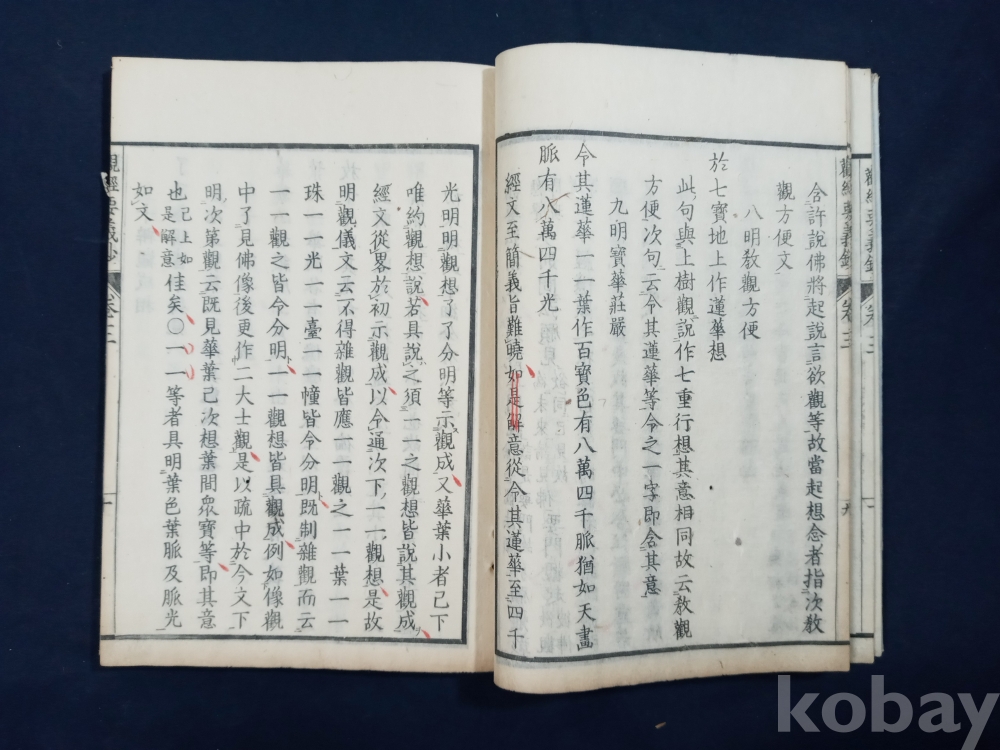 含許說佛將起說言欲觀等故當起想念者指次敎
觀方便文
八明敎觀方便
於七寶地上作蓮華想
此句與上樹觀說作七重行想其意相同故云敎觀
方便次句云令其蓮華等令之一字即念其意
九明寶華莊嚴
令其蓮華一一葉作百寶色有八萬四千脈猶如天畫
脈有八萬四千光
經文至簡義旨難曉如是解意從令其蓮華至四千
光明明觀想了了分明等示觀成又華葉小者已下
唯約觀想說若具說之須一一之觀想皆說其觀成
經文從畧於初示觀成以令通次下一一觀想是故
明觀儀文云不得雜觀皆應一一觀之一一葉一一
珠一一光一一臺一一幢皆令分明既制雜觀而云
一一觀之皆令分明一一觀想皆具觀成例如像觀
中了見佛像後更作二大士觀是以疏中於今文下
明次第觀云既見華葉已次想葉間眾寶等即其意
也已上如是解意佳矣〇一一等者具明葉色葉脈及脈光
如文
觀經要義鈔
卷三
九
觀經要義鈔
卷三
kobay